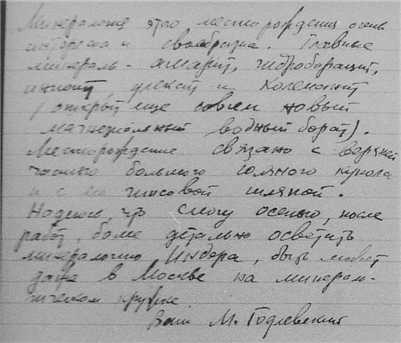 Минералогия этого месторождения очень
интересна и своеобразна. Главные
минералы - ашарит, гидроборацит,
иниоит улексит и колеманит
/ открыт еще совсем новый
магнезиальный водный борат).
Месторождение связано с верхней
частью большого соляного купола
и с его гипсовой шляпой.
Надеюсь, что смогу осенью, после
работ, более детально осветить
минералогию Индера, быть может
даже в Москве на минерало-
гическом кружке.
Ваш М. Годлевский